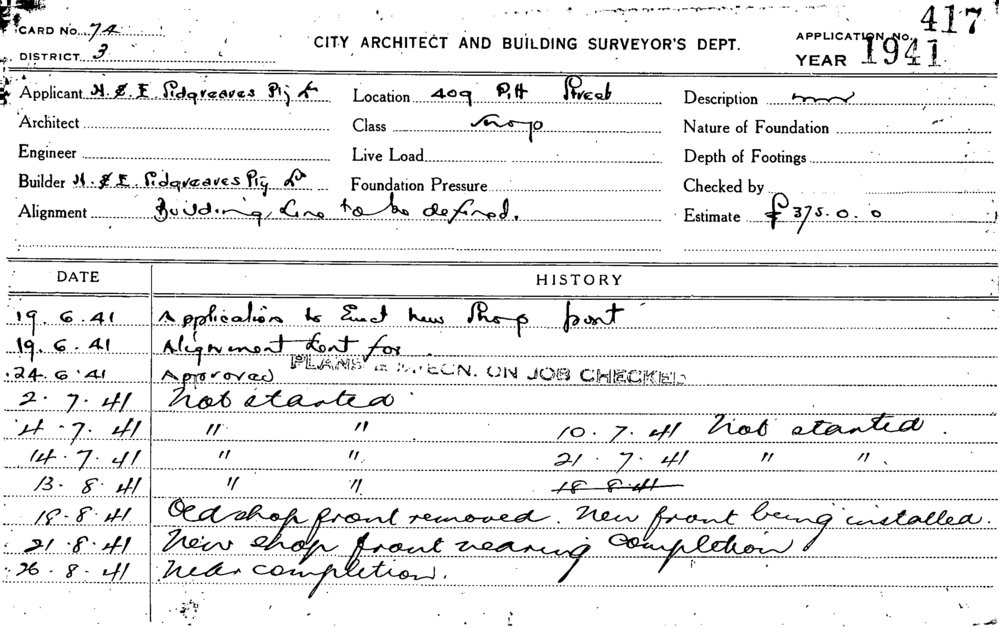 CARD No. 74
DISTRICT 3
CITY ARCHITECT AND BUILDING SURVEYOR'S DEPT.
APPLICATION No. 417
YEAR 1941
Applicant H. & E. Sidgreaves Pty Ld Location 409 Pitt Street Description
Architect Class Shop Nature of Foundation
Engineer Live Load Depth of Footings
Builder H. & E. Sidgreaves Pty Ld Foundation Pressure Checked by
Alignment Building Line to be defined. Estimate £ 375. 0. 0
DATE HISTORY
19. 6. 41 Application to Erect new Shop front
19. 6. 41 Alignment sent for.
24. 6. 41 Approved PLANS & SPECN. ON JOB CHECKED
2. 7. 41 Not started
4. 7. 41 " " 10. 7. 41 Not started.
14. 7. 41 " " 21. 7. 41 " ".
13. 8. 41 " " 18 8 41
18. 8. 41 Old shop front removed. New front being installed.
21. 8. 41 New shop front nearing completion
26. 8. 41 Near completion.